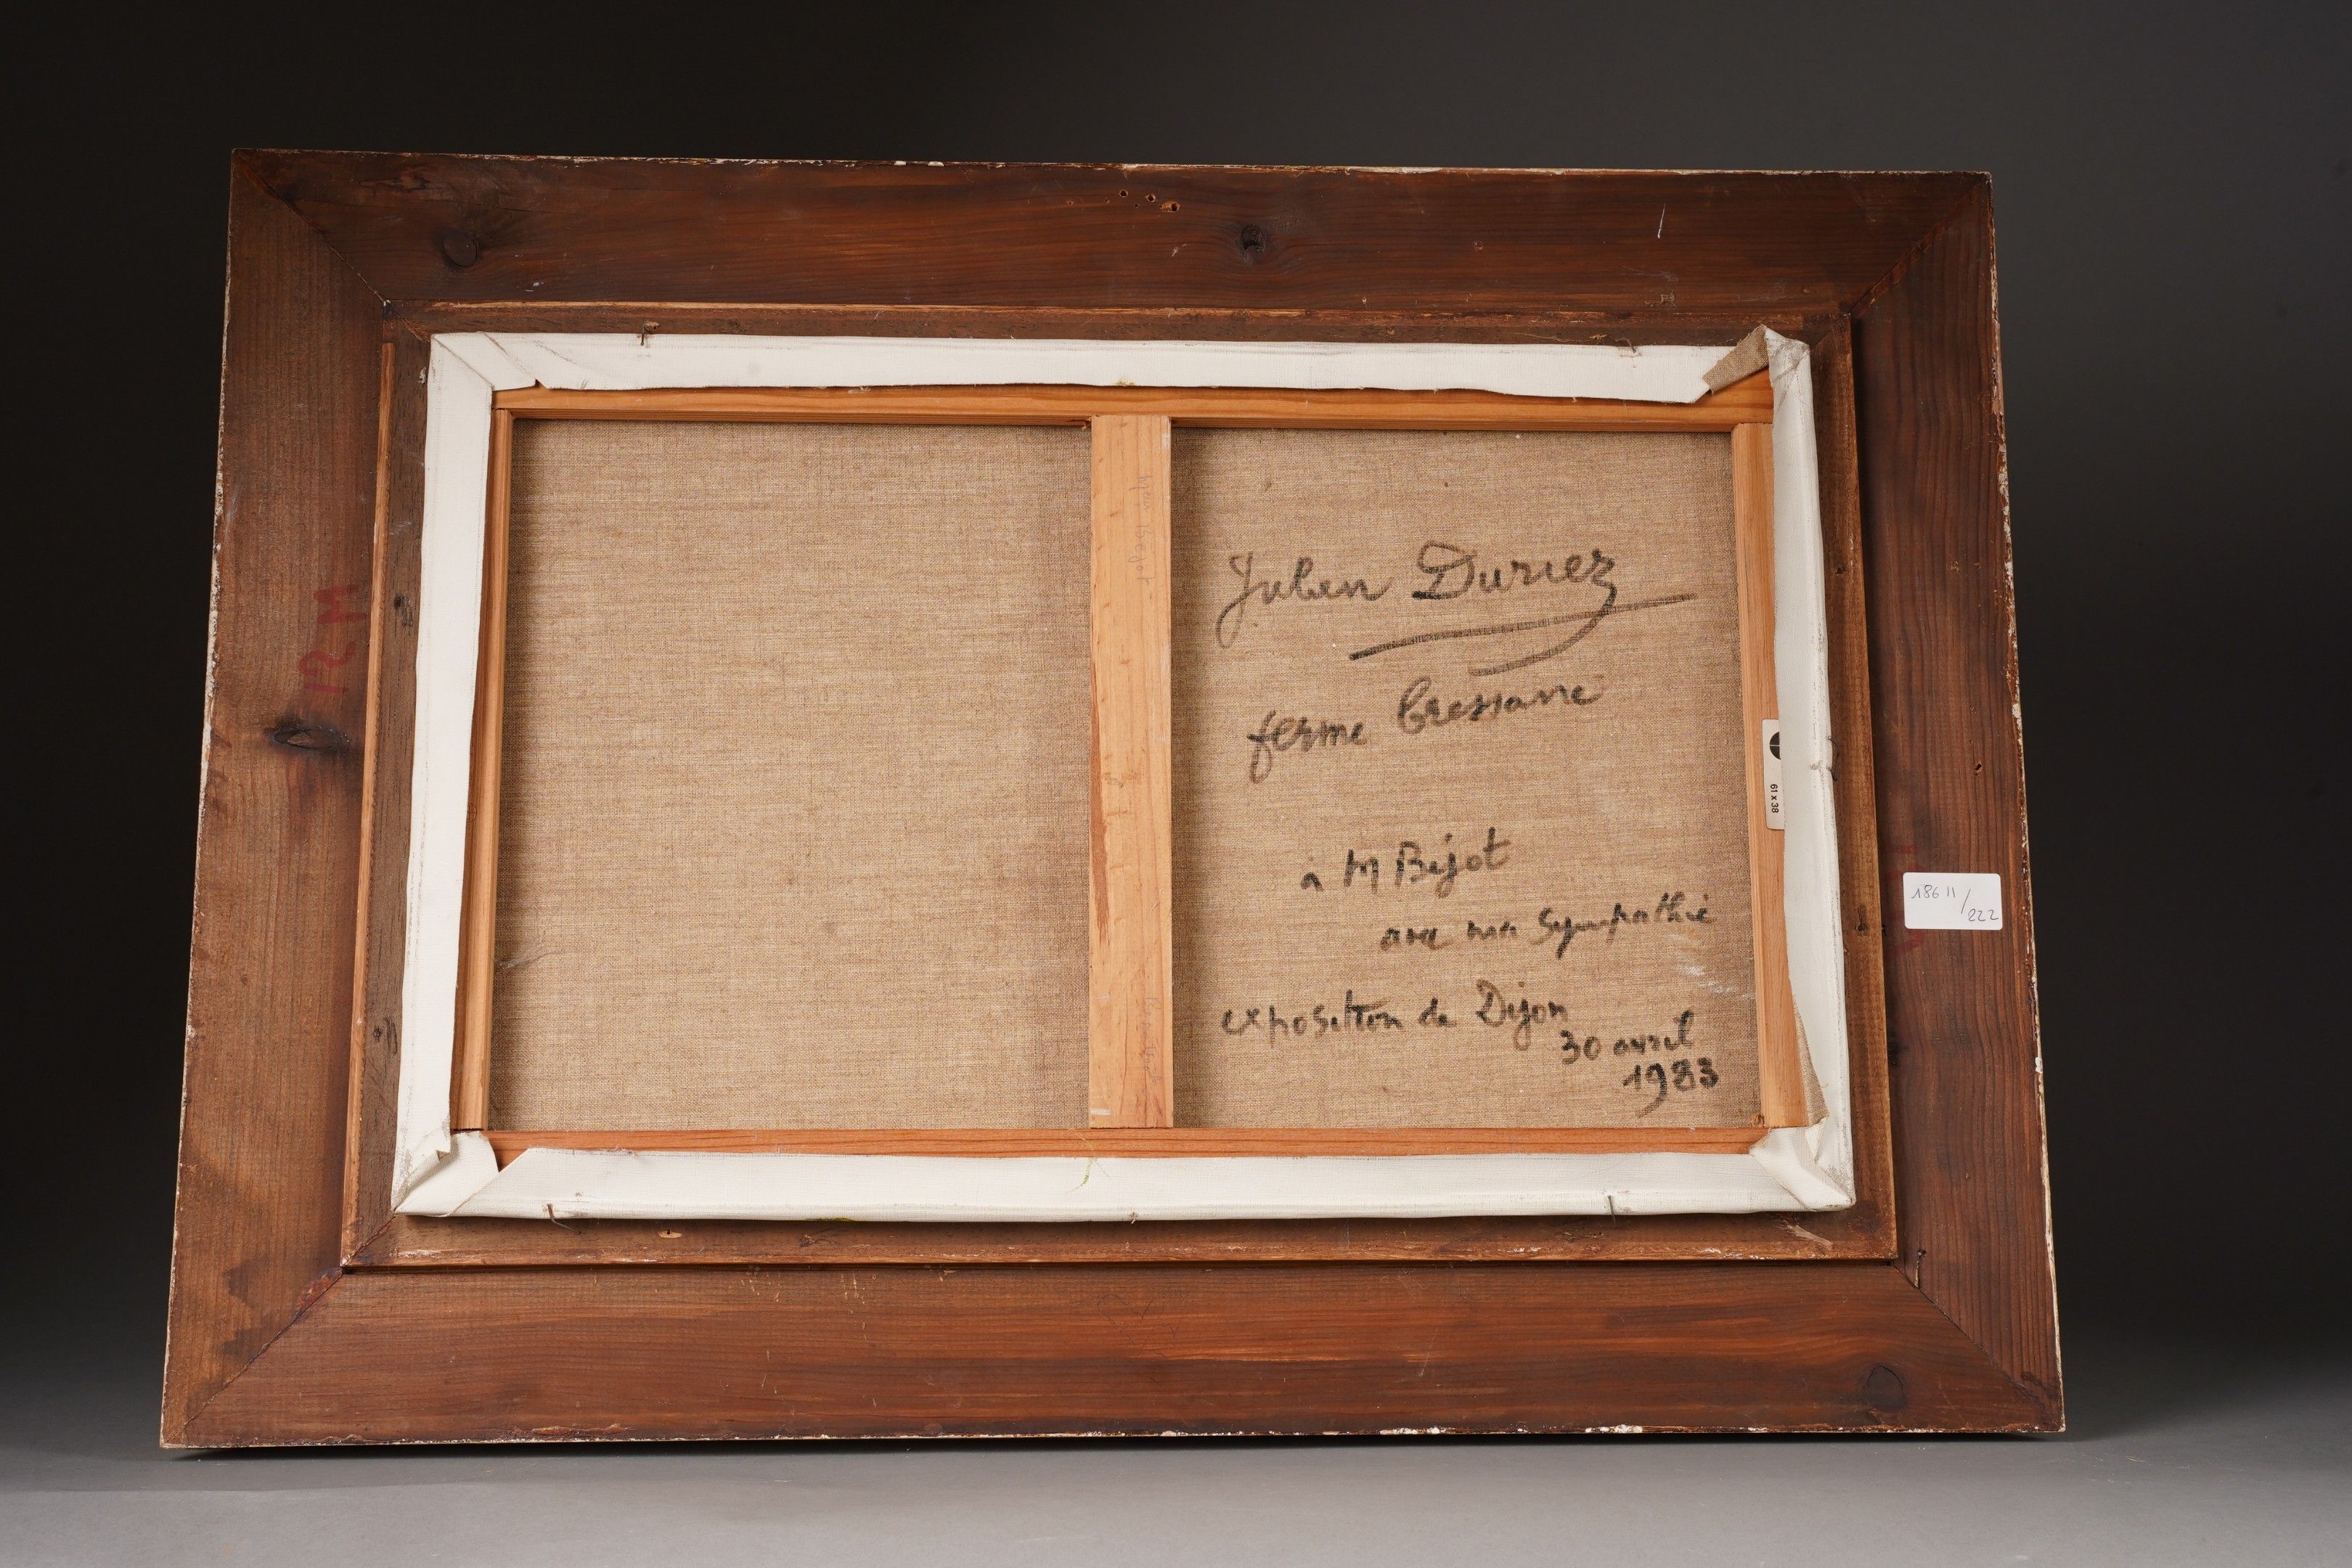 Julien Duriez
ferme bressanne
à M Bijot
avec ma sympathie
exposition de Dijon
30 avril
1983
61 x 38
18611/
222
12 M